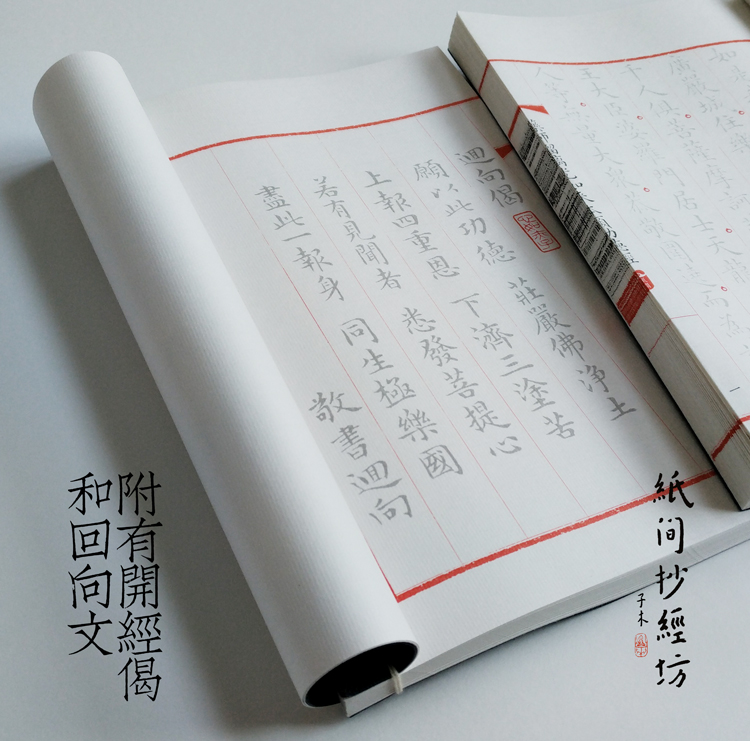 迴向偈
願以此功德 莊嚴佛淨土
上報四重恩 下濟三塗苦
若有見聞者 悉發菩提心
盡此一報身 同生極樂國
敬書迴向
如是
廣嚴城住
千人俱菩薩摩訶
王大臣婆羅門居士天龍
人等無量大眾恭敬圍遶而為
附有開經偈
和回向文
紙间抄經坊
子木